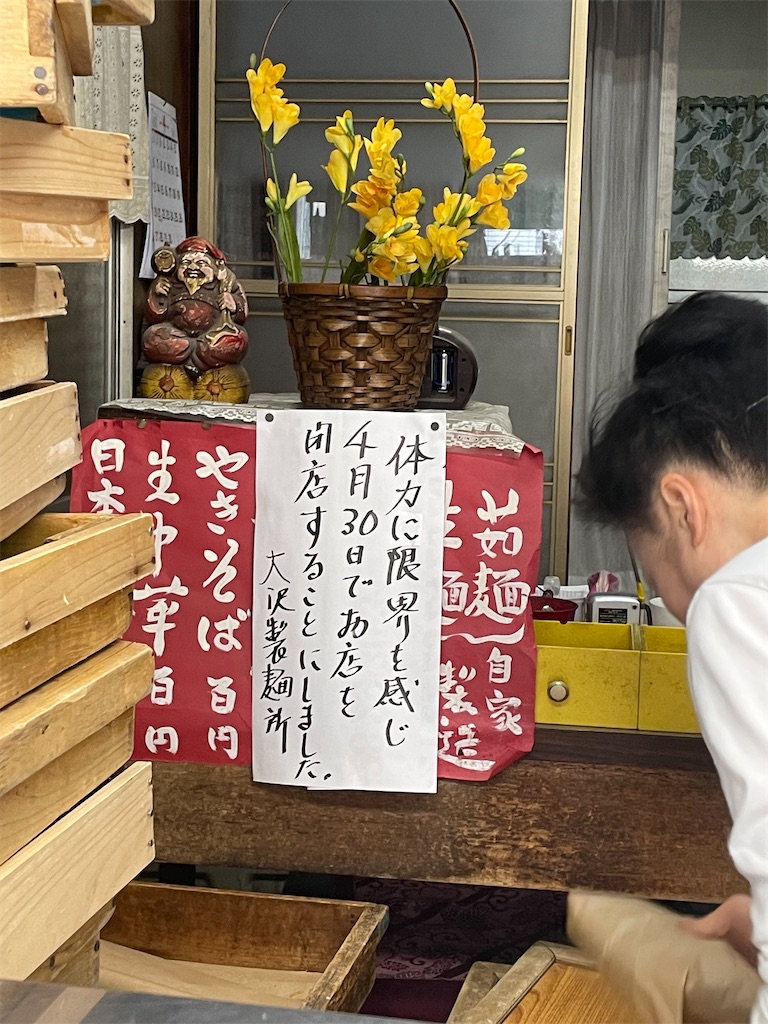 茹麺
自家
生麺
製造
体力に限界を感じ
4月30日でお店を
閉店することにしました。
大沢製麺所
やきそば 百円
生中華 百円
日本